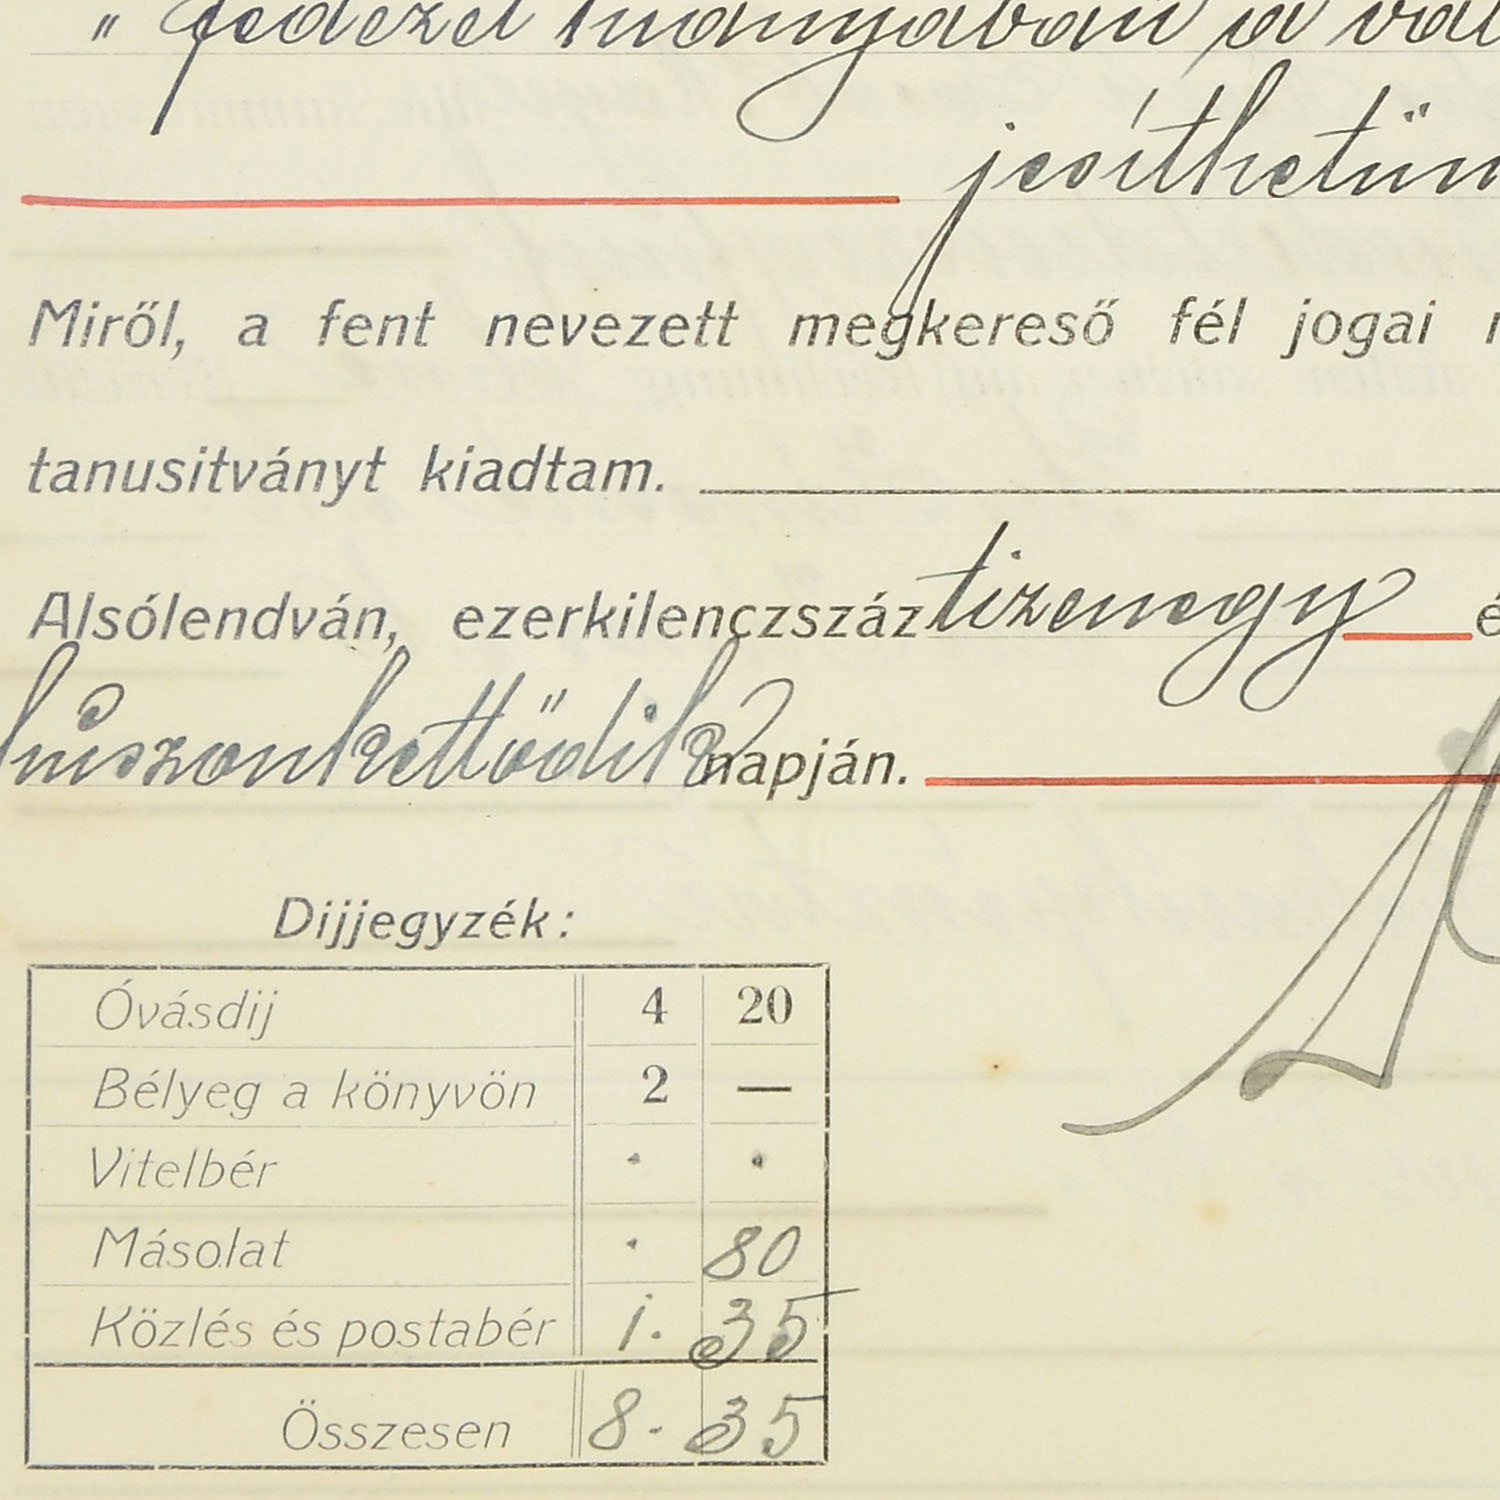 " fedezet hiányában a vál
jesíthetün
Miről, a fent nevezett megkereső fél jogai
tanusitványt kiadtam.
Alsólendván, ezerkilenczszáz tizenegy é
húszonkettődik napján.
Dijjegyzék:
Óvásdij 4 20
Bélyeg a könyvön 2 —
Vitelbér . .
Másolat . 80
Közlés és postabér 1. 35
Összesen 8. 35